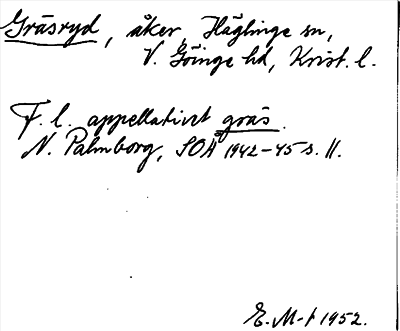 Gräsryd, åker, Häglinge sn,
V. Göinge hd, Krist. l.
F. l. appellativt gräs.
N. Palmborg, SOÅ 1942-45 s. 11.
E. M-t 1952.